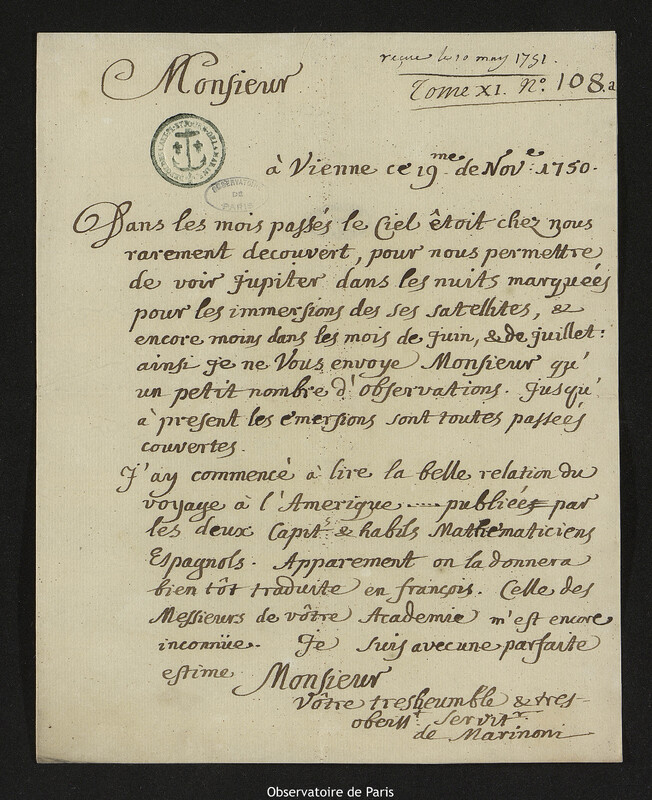 reçue le 10 may 1751.
Tome XI. N.º 108.a
Monsieur
OBSERVATOIRE
DE
PARIS
à Vienne ce 19.me de Nov.e 1750.
Dans les mois passés le Ciel êtoit chez nous
rarement decouvert, pour nous permettre
de voir Jupiter dans les nuits marquées
pour les immersions des ses satellites, &
encore moins dans les mois de Juin, & de Juillet:
ainsi Je ne Vous envoye Monsieur qu'
un petit nombre d'Observations. Jusqu'
à present les emersions sont toutes passeés
couvertes.
J'ay commencé à lire la belle relation du
voyage à l'Amerique ..... publieé par
les deux Capit.s & habils Mathematiciens
Espagnols. Apparement on la donnera
bien tôt traduite en françois. Celle des
Messieurs de vôtre Academie m'est encore
inconnüe. Je suis avec une parfaite
estime Monsieur
Vôtre tresheumble & tres-
obeiss.t servit.r
de Marinoni
Observatoire de Paris